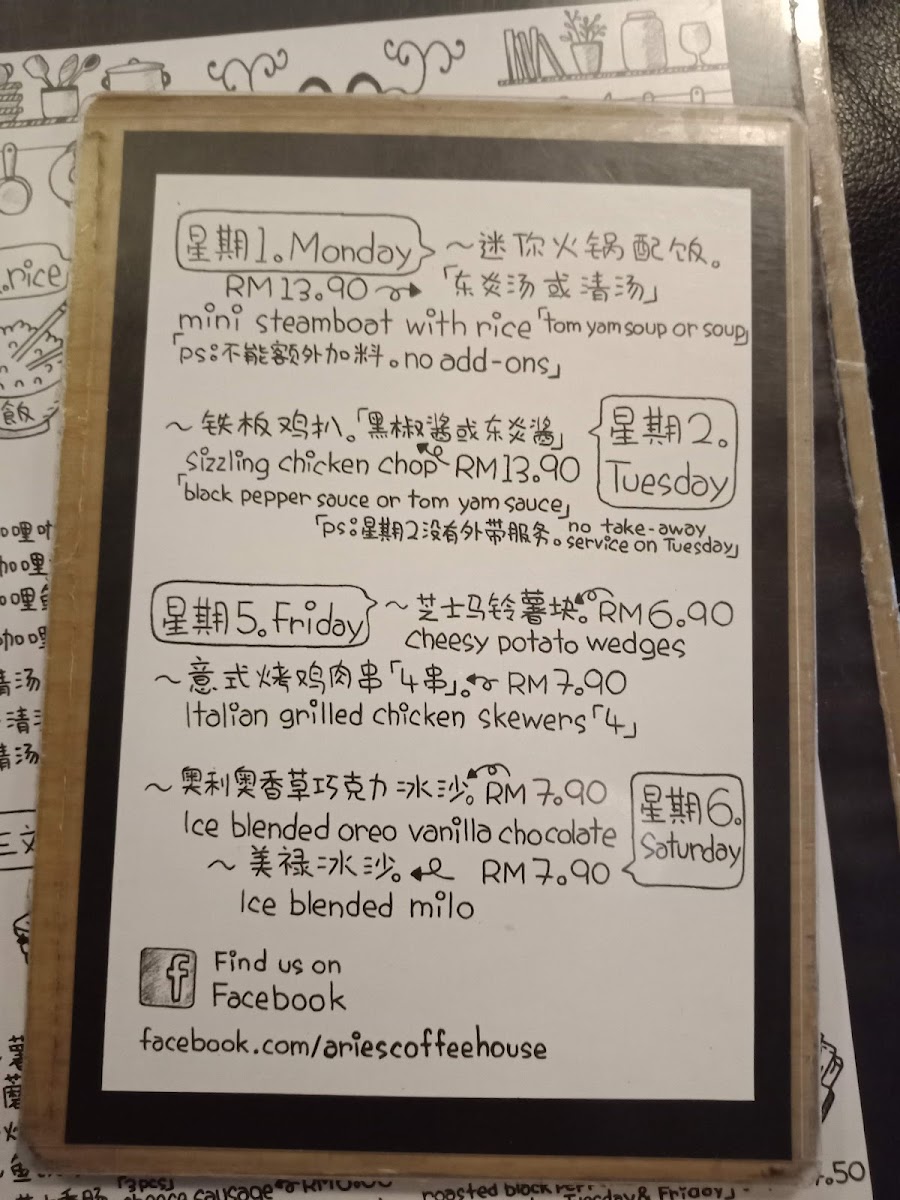 星期1。Monday ~迷你火锅配饭。
RM13.90 「东炎汤或清汤」
mini steamboat with rice「tom yam soup or soup」
「ps:不能额外加料。no add-ons」
~铁板鸡扒。「黑椒酱或东炎酱」
sizzling chicken chop RM13.90
「black pepper sauce or tom yam sauce」
星期2。
Tuesday
「ps:星期2没有外带服务。no take-away
service on Tuesday」
星期5。Friday ~芝士马铃薯块。RM6.90
cheesy potato wedges
~意式烤鸡肉串「4串」。RM7.90
Italian grilled chicken skewers「4」
~奥利奥香草巧克力冰沙。RM7.90
Ice blended oreo vanilla chocolate
星期6。
Saturday
~美禄冰沙。 RM7.90
Ice blended milo
f
Find us on
Facebook
facebook.com/ariescoffeehouse
rice
飯
咖哩
咖哩
咖哩
清汤
清汤
清汤
「3pcs」
cheese sausage
roasted black
Tuesday & Friday」
.50